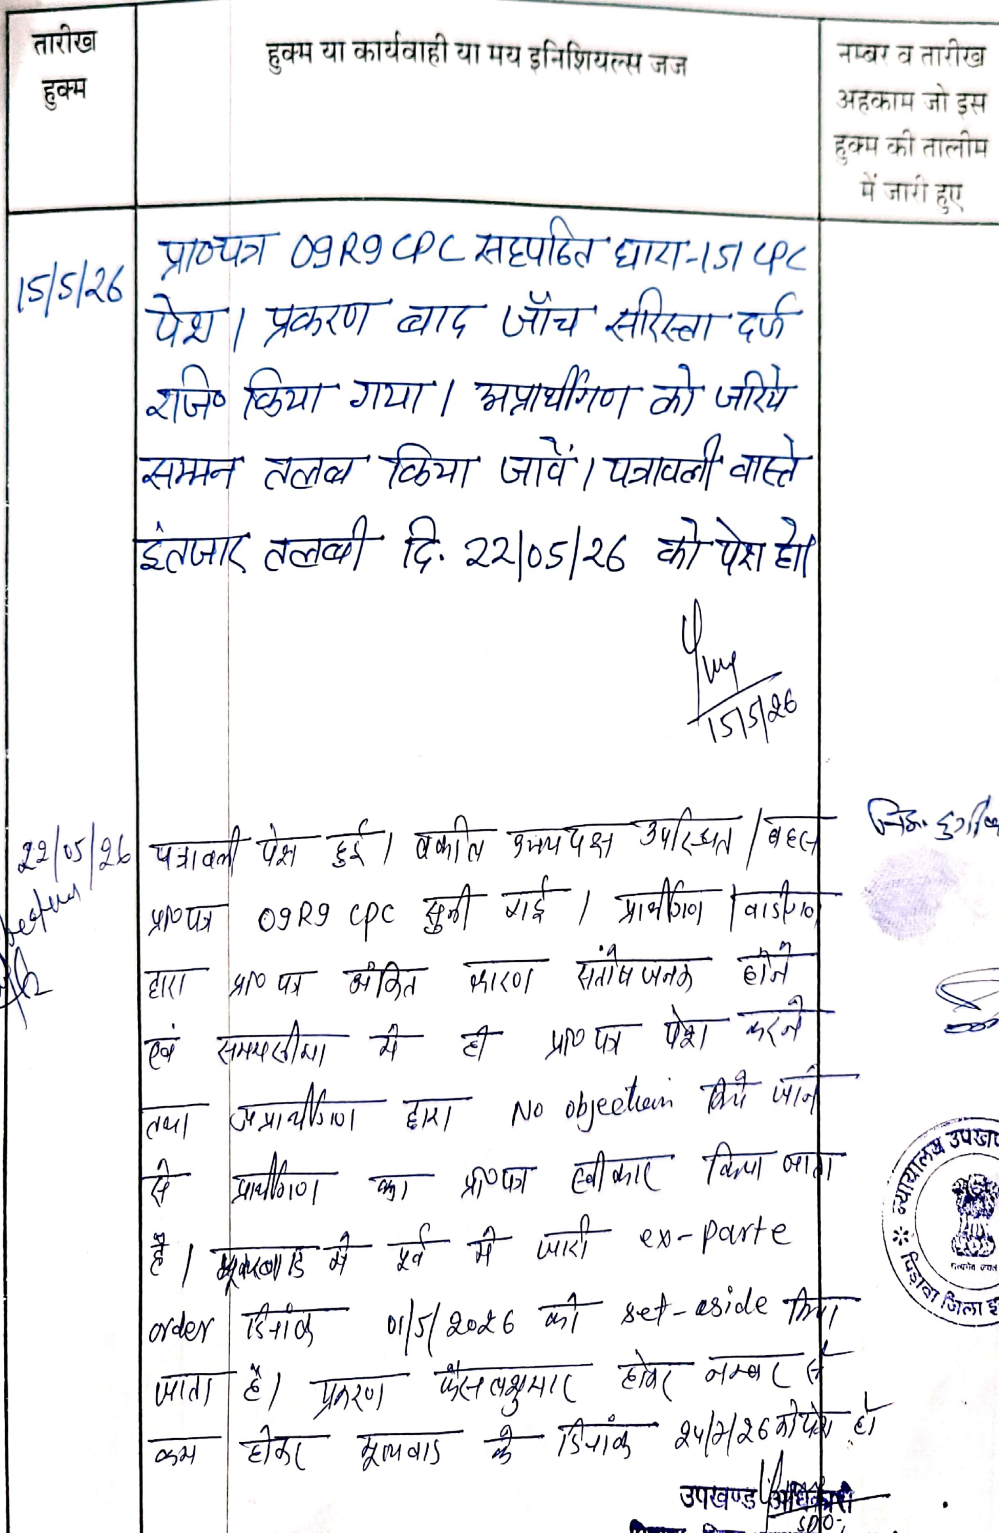 तारीख
हुक्म
हुक्म या कार्यवाही या मय इनिशियल्स जज
नम्बर व तारीख
अहकाम जो इस
हुक्म की तालीम
में जारी हुए
15/5/26
प्रा०पत्र 09R9 CPC सहपठित धारा-151 CPC
पेश। प्रकरण बाद जाँच सरिस्ता दर्ज
रजि० किया गया। अप्रार्थीगण को जरिये
सम्मन तलब किया जावें। पत्रावली वास्ते
इंतजार तलबी दि. 22/05/26 को पेश हो।
15/5/26
22/05/26
पत्रावली पेश हुई। वकील उभयपक्ष उपस्थित। बहस
प्रा०पत्र 09R9 CPC सुनी गई। प्रार्थीगण/वादीगण
द्वारा प्रा० पत्र अंकित कारण संतोषजनक होने
एवं समयसीमा में ही प्रा० पत्र पेश करने
तथा अप्रार्थीगण द्वारा No objection किये जाने
से प्रार्थीगण का प्रा०पत्र स्वीकार किया जाता
है। मूलवाद में पूर्व में जारी ex-parte
order दिनांक 01/5/2026 को set-aside किया
जाता है। प्रकरण फैसलशुमार होकर नम्बर से
कम होकर मूलवाद के दिनांक को पेश हो
न्यायालय उपखण्ड
पिड़ावा जिला
उपखण्ड अधिकारी